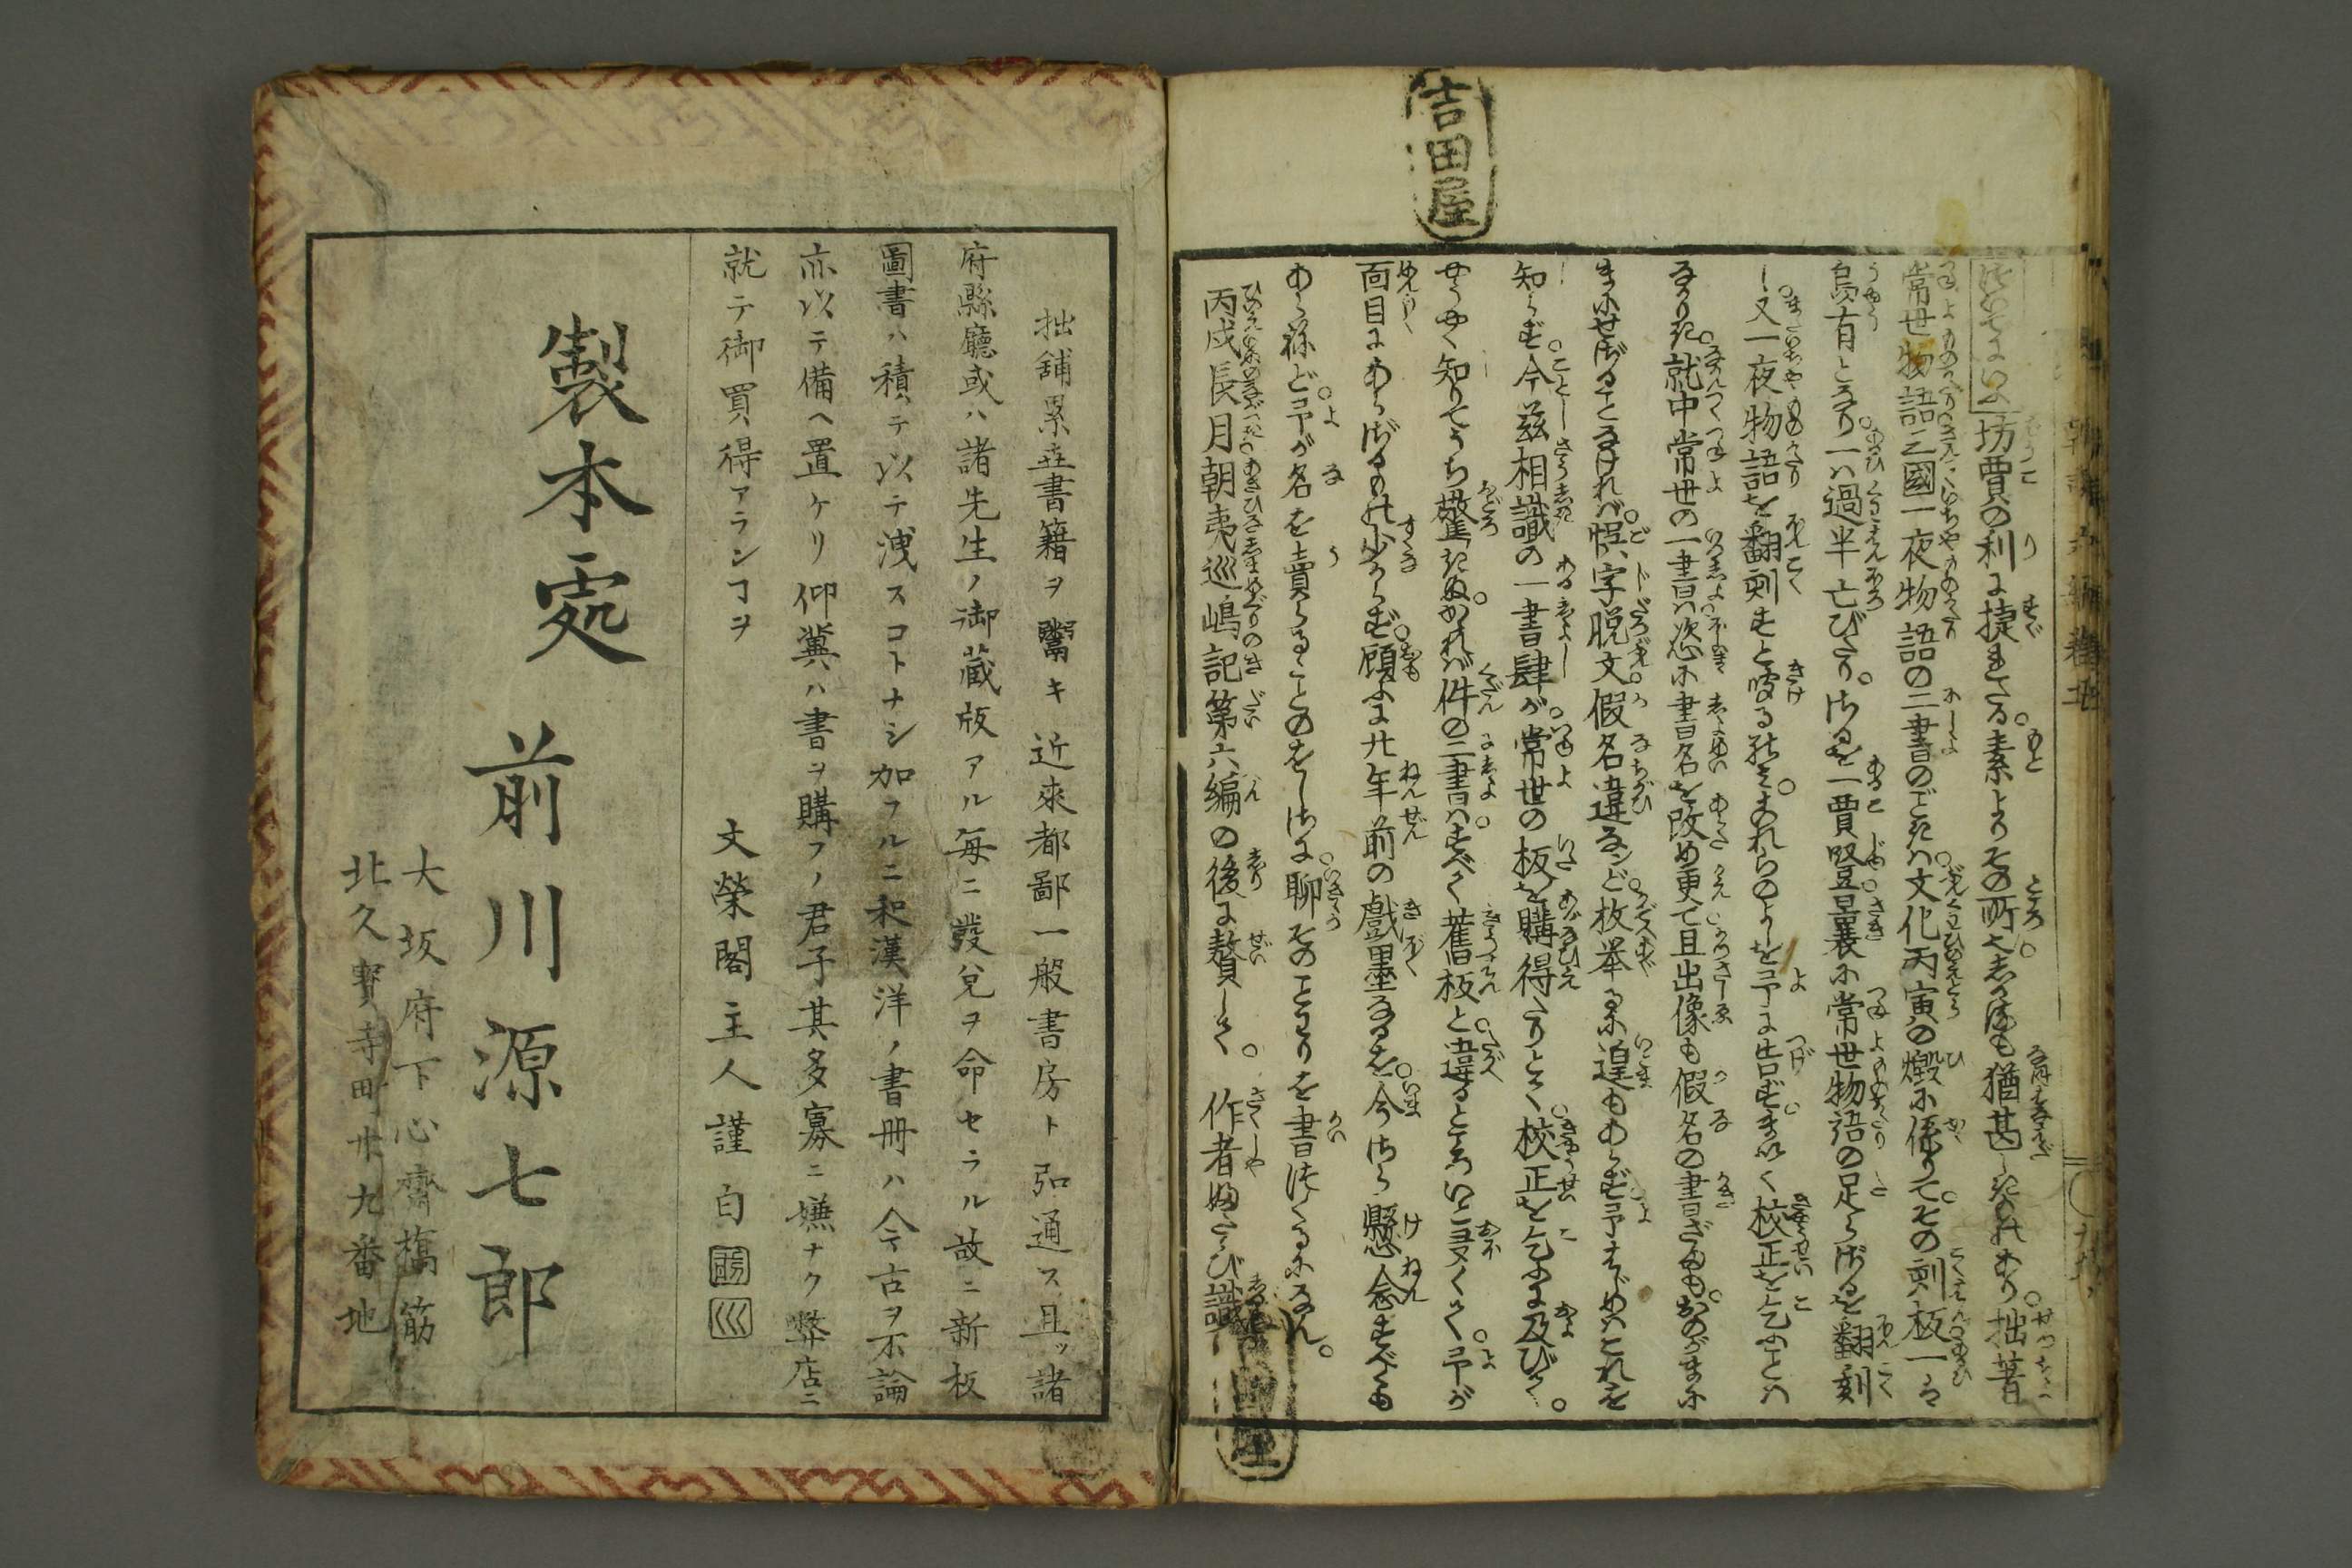 吉田屋
坊賈の利に捷きたる。素よりその所也しかれども猶甚しきものあり。拙著
常世物語三國一夜物語の二書のごときは文化丙寅の燬に係りて。その刻板一ツは
烏有となり一ツは過半亡びたり。さるを一賈豎曩に常世物語の足らざるを翻刻
し又一夜物語を翻刻すと聞えしを。これらのよしを予に告ず。まいて校正を乞ふことは
なかりき。就中常世の一書は恣に書名を改め更て且出像も假名の書ざまも。おのがまに
まにせざることなければ。悞字脱文。假名違ヒなンど。枚挙るに遑もあらず。予はじめはこれを
知らず。今茲相識の一書肆が。常世の板を購得たりとて。校正を乞ふに及びて。
せうやく知りてうち驚きぬ。かゝれば件の二書は。すべて舊板と。違ふところいと多くて。予が
面目にあらざるもの少からず。顧ふに廿年前の戲墨なるを。今さら懸念すべくも
あらねど。予が名を賣らるゝことのをしければ。聊そのことわりを書つくるになん。
丙戌長月朝夷巡嶋記第六編の後に贅して。作者ふたゝび識
拙舗累世書籍ヲ鬻キ近來都鄙一般書房ト弘通ス且ツ諸
府縣廳或ハ諸先生ノ御蔵版アル毎ニ發兌ヲ命セラル故ニ新板
圖書ハ積テ以テ洩スコトナシ加フルニ和漢洋ノ書冊ハ今古ヲ不論
亦以テ備ヘ置ケリ仰冀ハ書ヲ購フノ君子其多寡ニ嫌ナク弊店ニ
就テ御買得アランコヲ
文榮閣主人謹白
製本處
前川源七郎
大坂府下心齋橋筋
北久寳寺町廿九番地